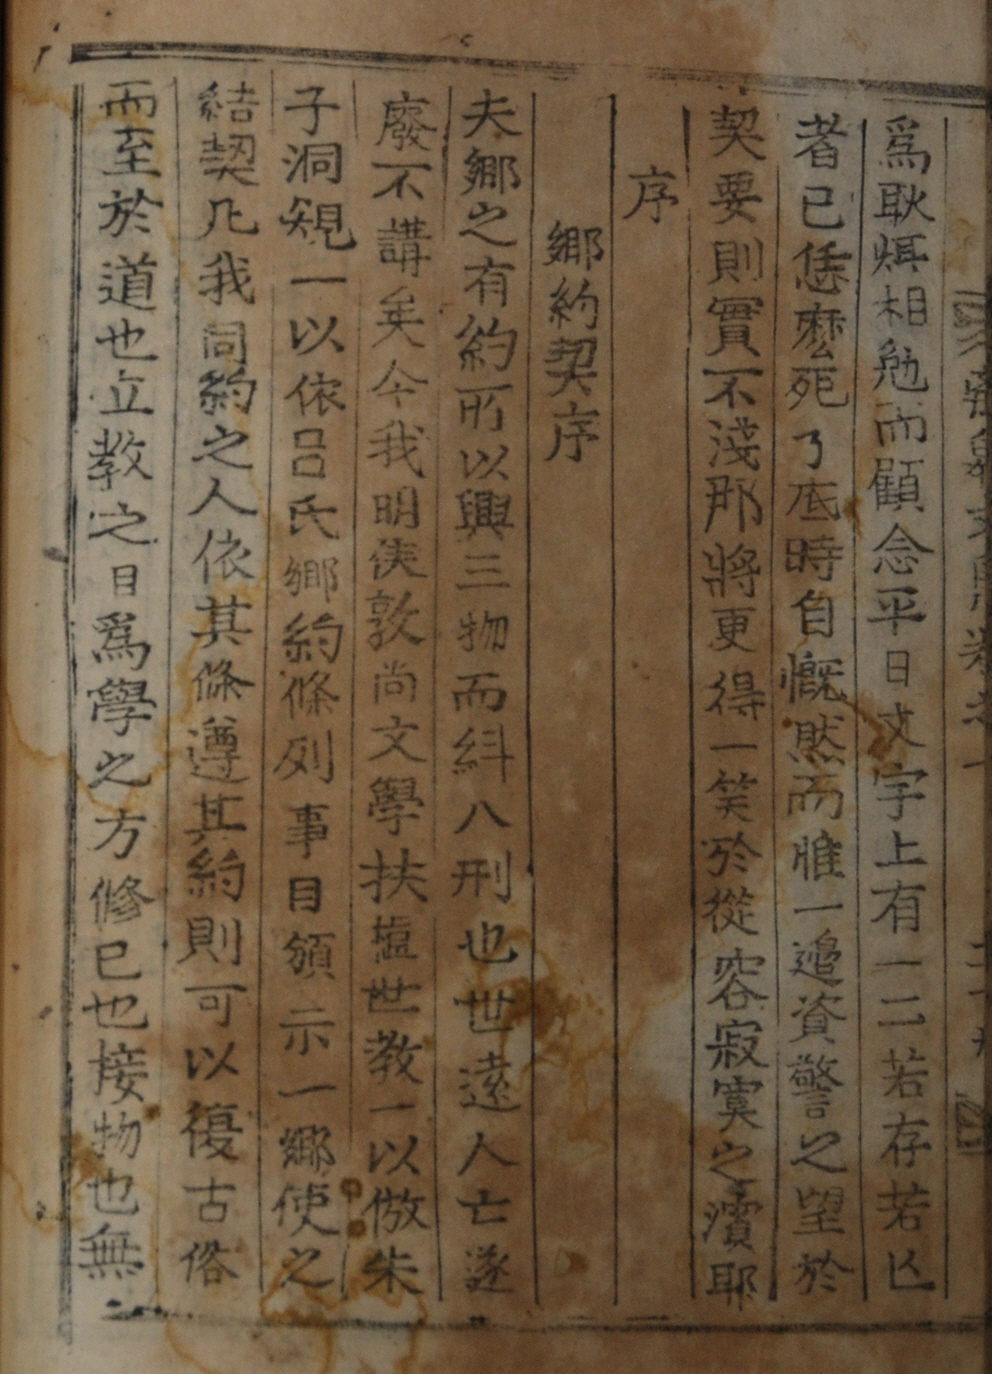 爲耿烱相勉而顧念平日文字上有一二若存若亾
者已恁麽死了底時自慨然而惟一邉資警之望於
契要則實不淺那將更得一笑於從容寂寞之濱耶
序
鄕約契序
夫鄕之有約所以興三物而糾八刑也世遠人亡遂
廢不講矣今我明侯敦尚文學扶植世教一以倣朱
子洞規一以依呂氏鄕約條列事目頒示一鄕使之
結契凡我同約之人依其條遵其約則可以復古俗
而至於道也立教之目爲學之方修己也接物也無